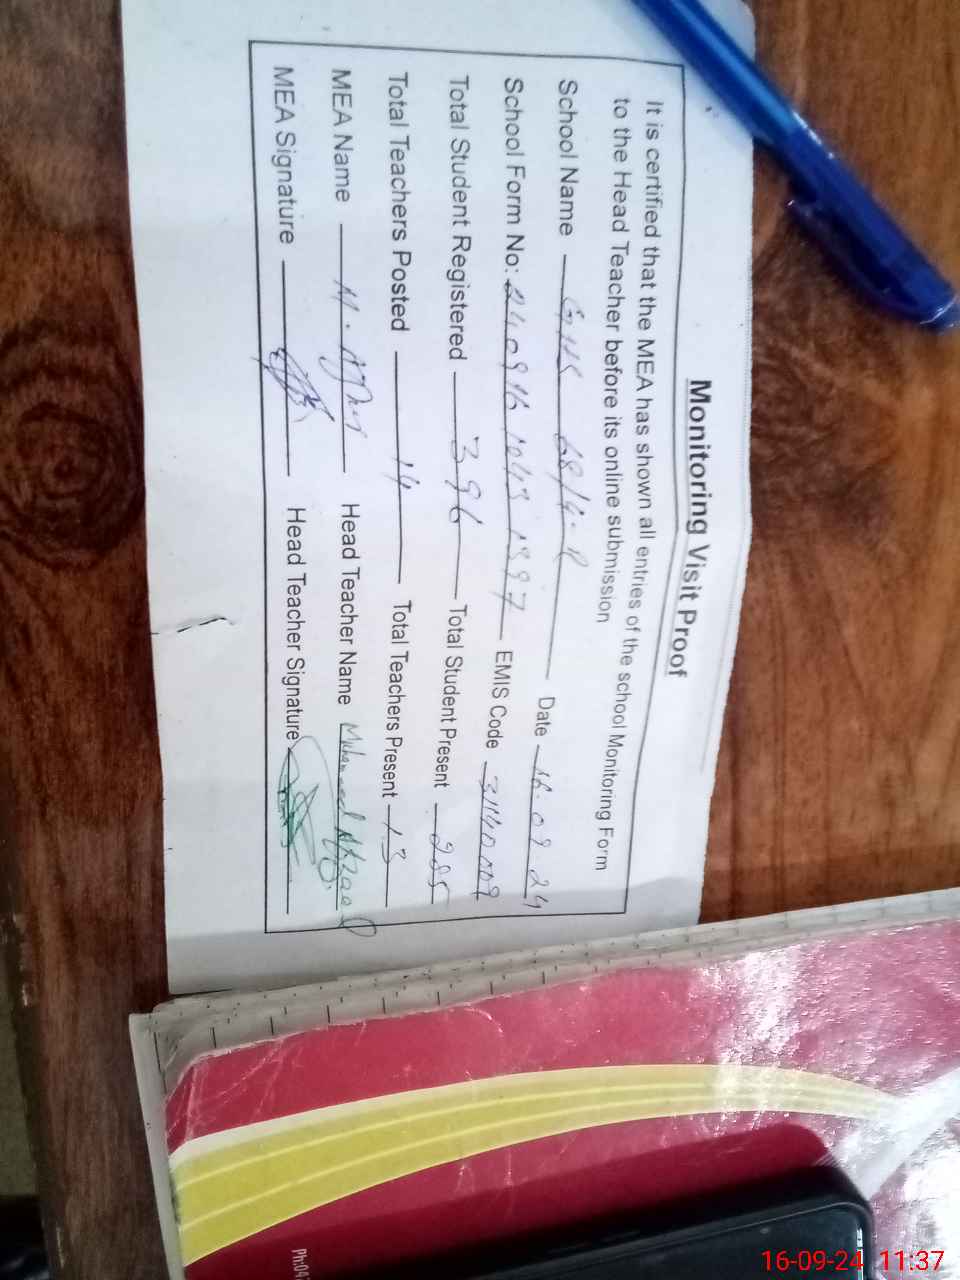 Monitoring Visit Proof
It is certified that the MEA has shown all entries of the school Monitoring Form
to the Head Teacher before its online submission
School Name GHS 68/4.R Date 16.09.24
School Form No: EMIS Code
Total Student Registered 396 Total Student Present 285
Total Teachers Posted 14 Total Teachers Present 13
MEA Name M. Head Teacher Name Muhammad Afzaal
MEA Signature Head Teacher Signature
Ph:04
16-09-24 11:37